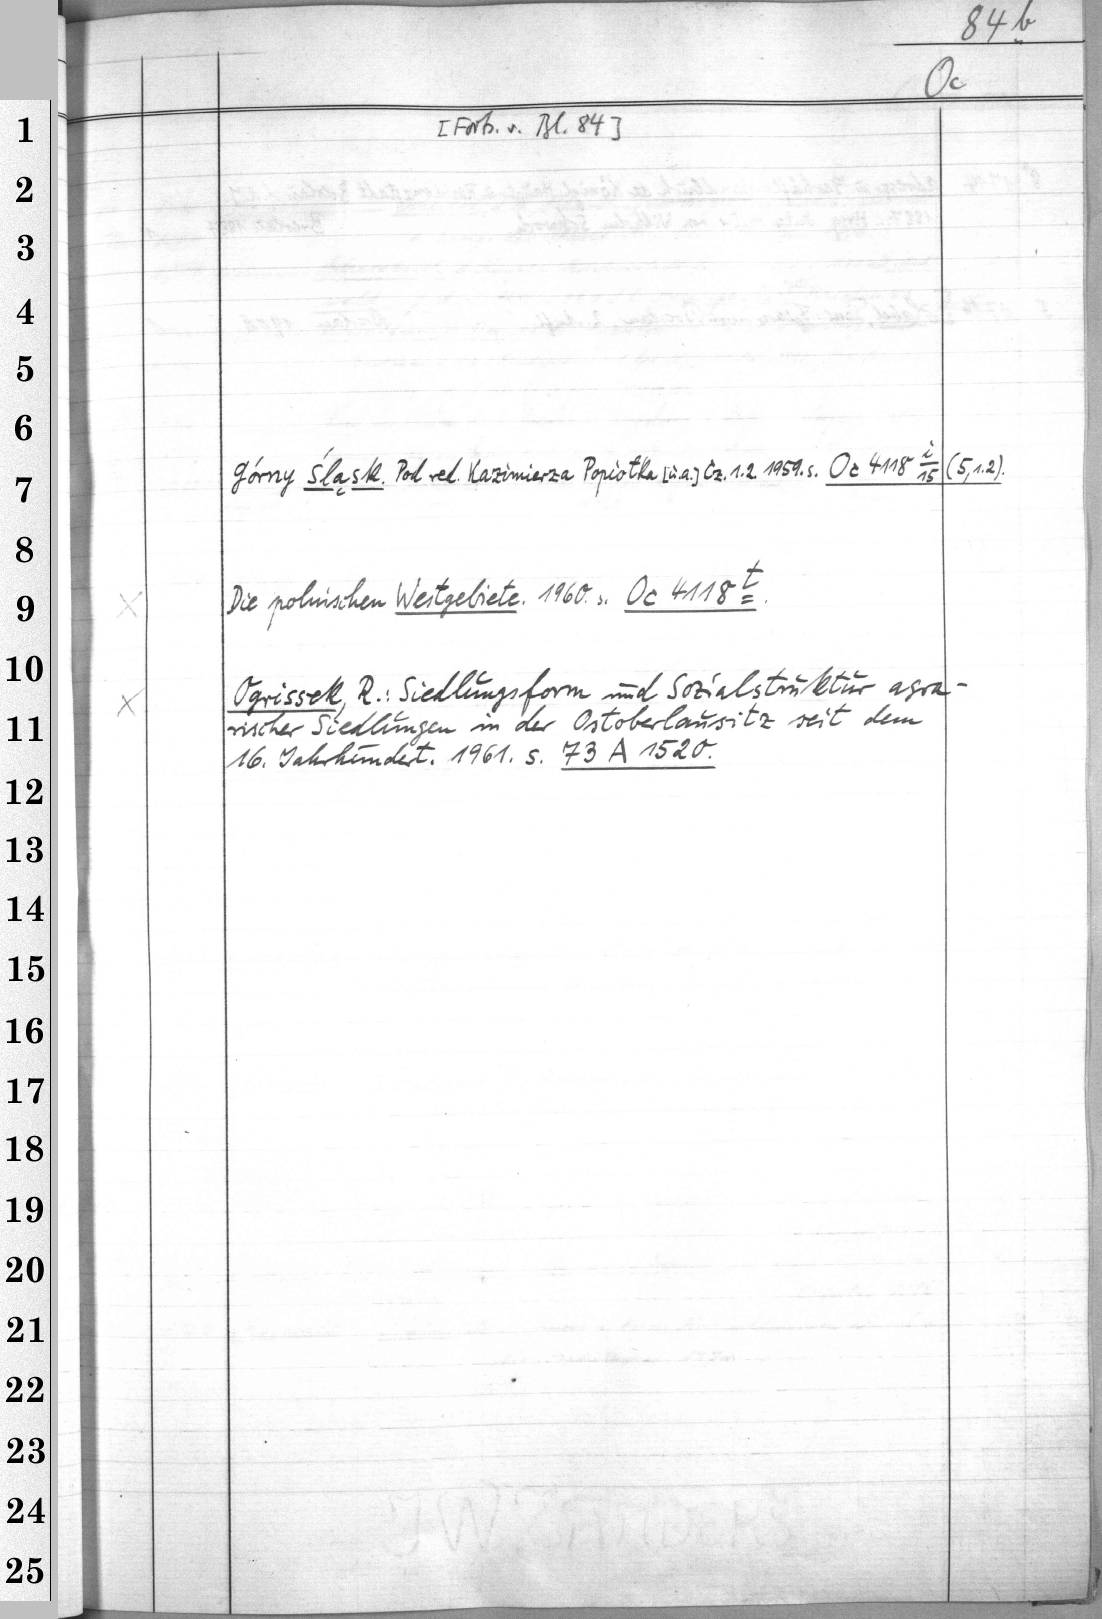 84 b
Oc
[Forts. v. Bl. 84]
Górny Śląsk. Pod red. Kazimierza Popiołka [u.a.] Cz. 1.2 1959. s. Oc 4118 i/15 (5,1.2).
Die polnischen Westgebiete. 1960. s. Oc 4118 t.
Ogrissek, R.: Siedlungsform und Sozialstruktur agra-
rischer Siedlungen in der Ostoberlausitz seit dem
16. Jahrhundert. 1961. s. 73 A 1520.
1
2
3
4
5
6
7
8
9
10
11
12
13
14
15
16
17
18
19
20
21
22
23
24
25